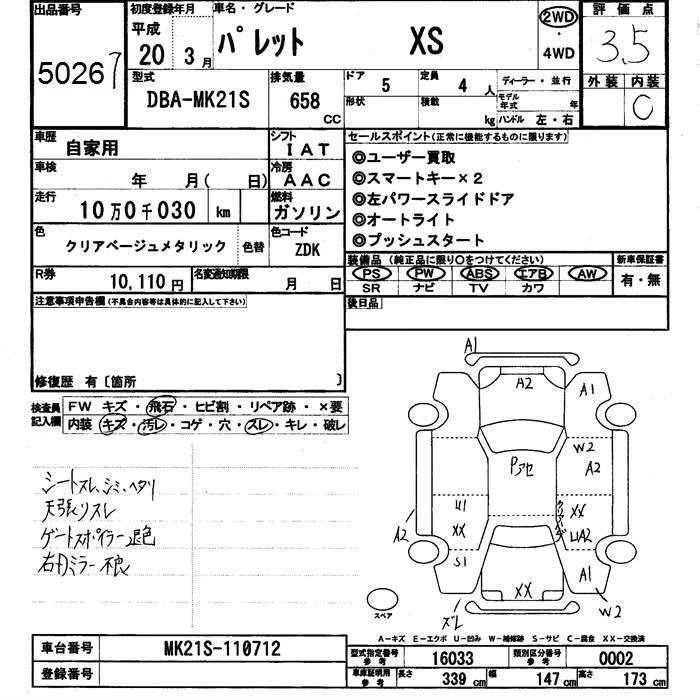 出品番号
50267
初度登録年月
平成
20 3月
車名・グレード
パレット XS
2WD
4WD
評価点
3.5
外装 内装
C
型式
DBA-MK21S
排気量
658 CC
ドア
5
形状
定員
4 人
積載
kg
ディーラー・並行
モデル年式 年
ハンドル 左・右
車歴
自家用
シフト
IAT
車検
年 月( 日)
冷房
AAC
走行
10万0千030 km
燃料
ガソリン
色
クリアベージュメタリック
色替
色コード
ZDK
R券
10,110円
名変通知期限
月 日
セールスポイント(正常に機能するものに限ります)
◎ユーザー買取
◎スマートキー×2
◎左パワースライドドア
◎オートライト
◎プッシュスタート
装備品(純正品に限り○をつけてください)
PS PW ABS エアB AW
SR ナビ TV カワ
新車保証書
有・無
後日品
注意事項申告欄(不具合内容等は具体的に記入して下さい)
修復歴 有〔箇所 〕
検査員記入欄
FW キズ・飛石・ヒビ割・リペア跡・×要
内装 キズ・汚レ・コゲ・穴・ズレ・キレ・破レ
シートスレ、シミ、ヘタリ
天張リスレ
ゲートスポイラー退色
右ドミラー不良
A1
A2
A1
Pアセ
W2
A2
U1
XX
XX
UA2
A2
S1
A1
XX
W2
ズレ
スペア
A-キズ E-エクボ U-凹み W-補修跡 S-サビ C-腐食 XX-交換済
車台番号
MK21S-110712
登録番号
型式指定番号 参考
16033
類別区分番号 参考
0002
車庫証明用 参考
長さ 339 cm
幅 147 cm
高さ 173 cm